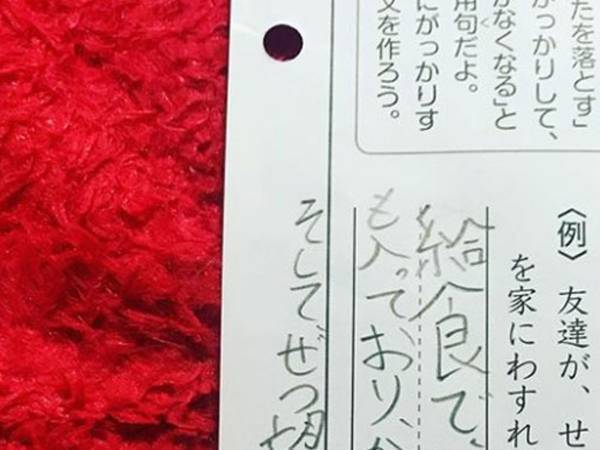 たを落とす」
がっかりして、
がなくなる」と
用句だよ。
にがっかりす
文を作ろう。
〈例〉友達が、せ
を家にわすれ
給食で、
も入っており、
そしてぜつ望